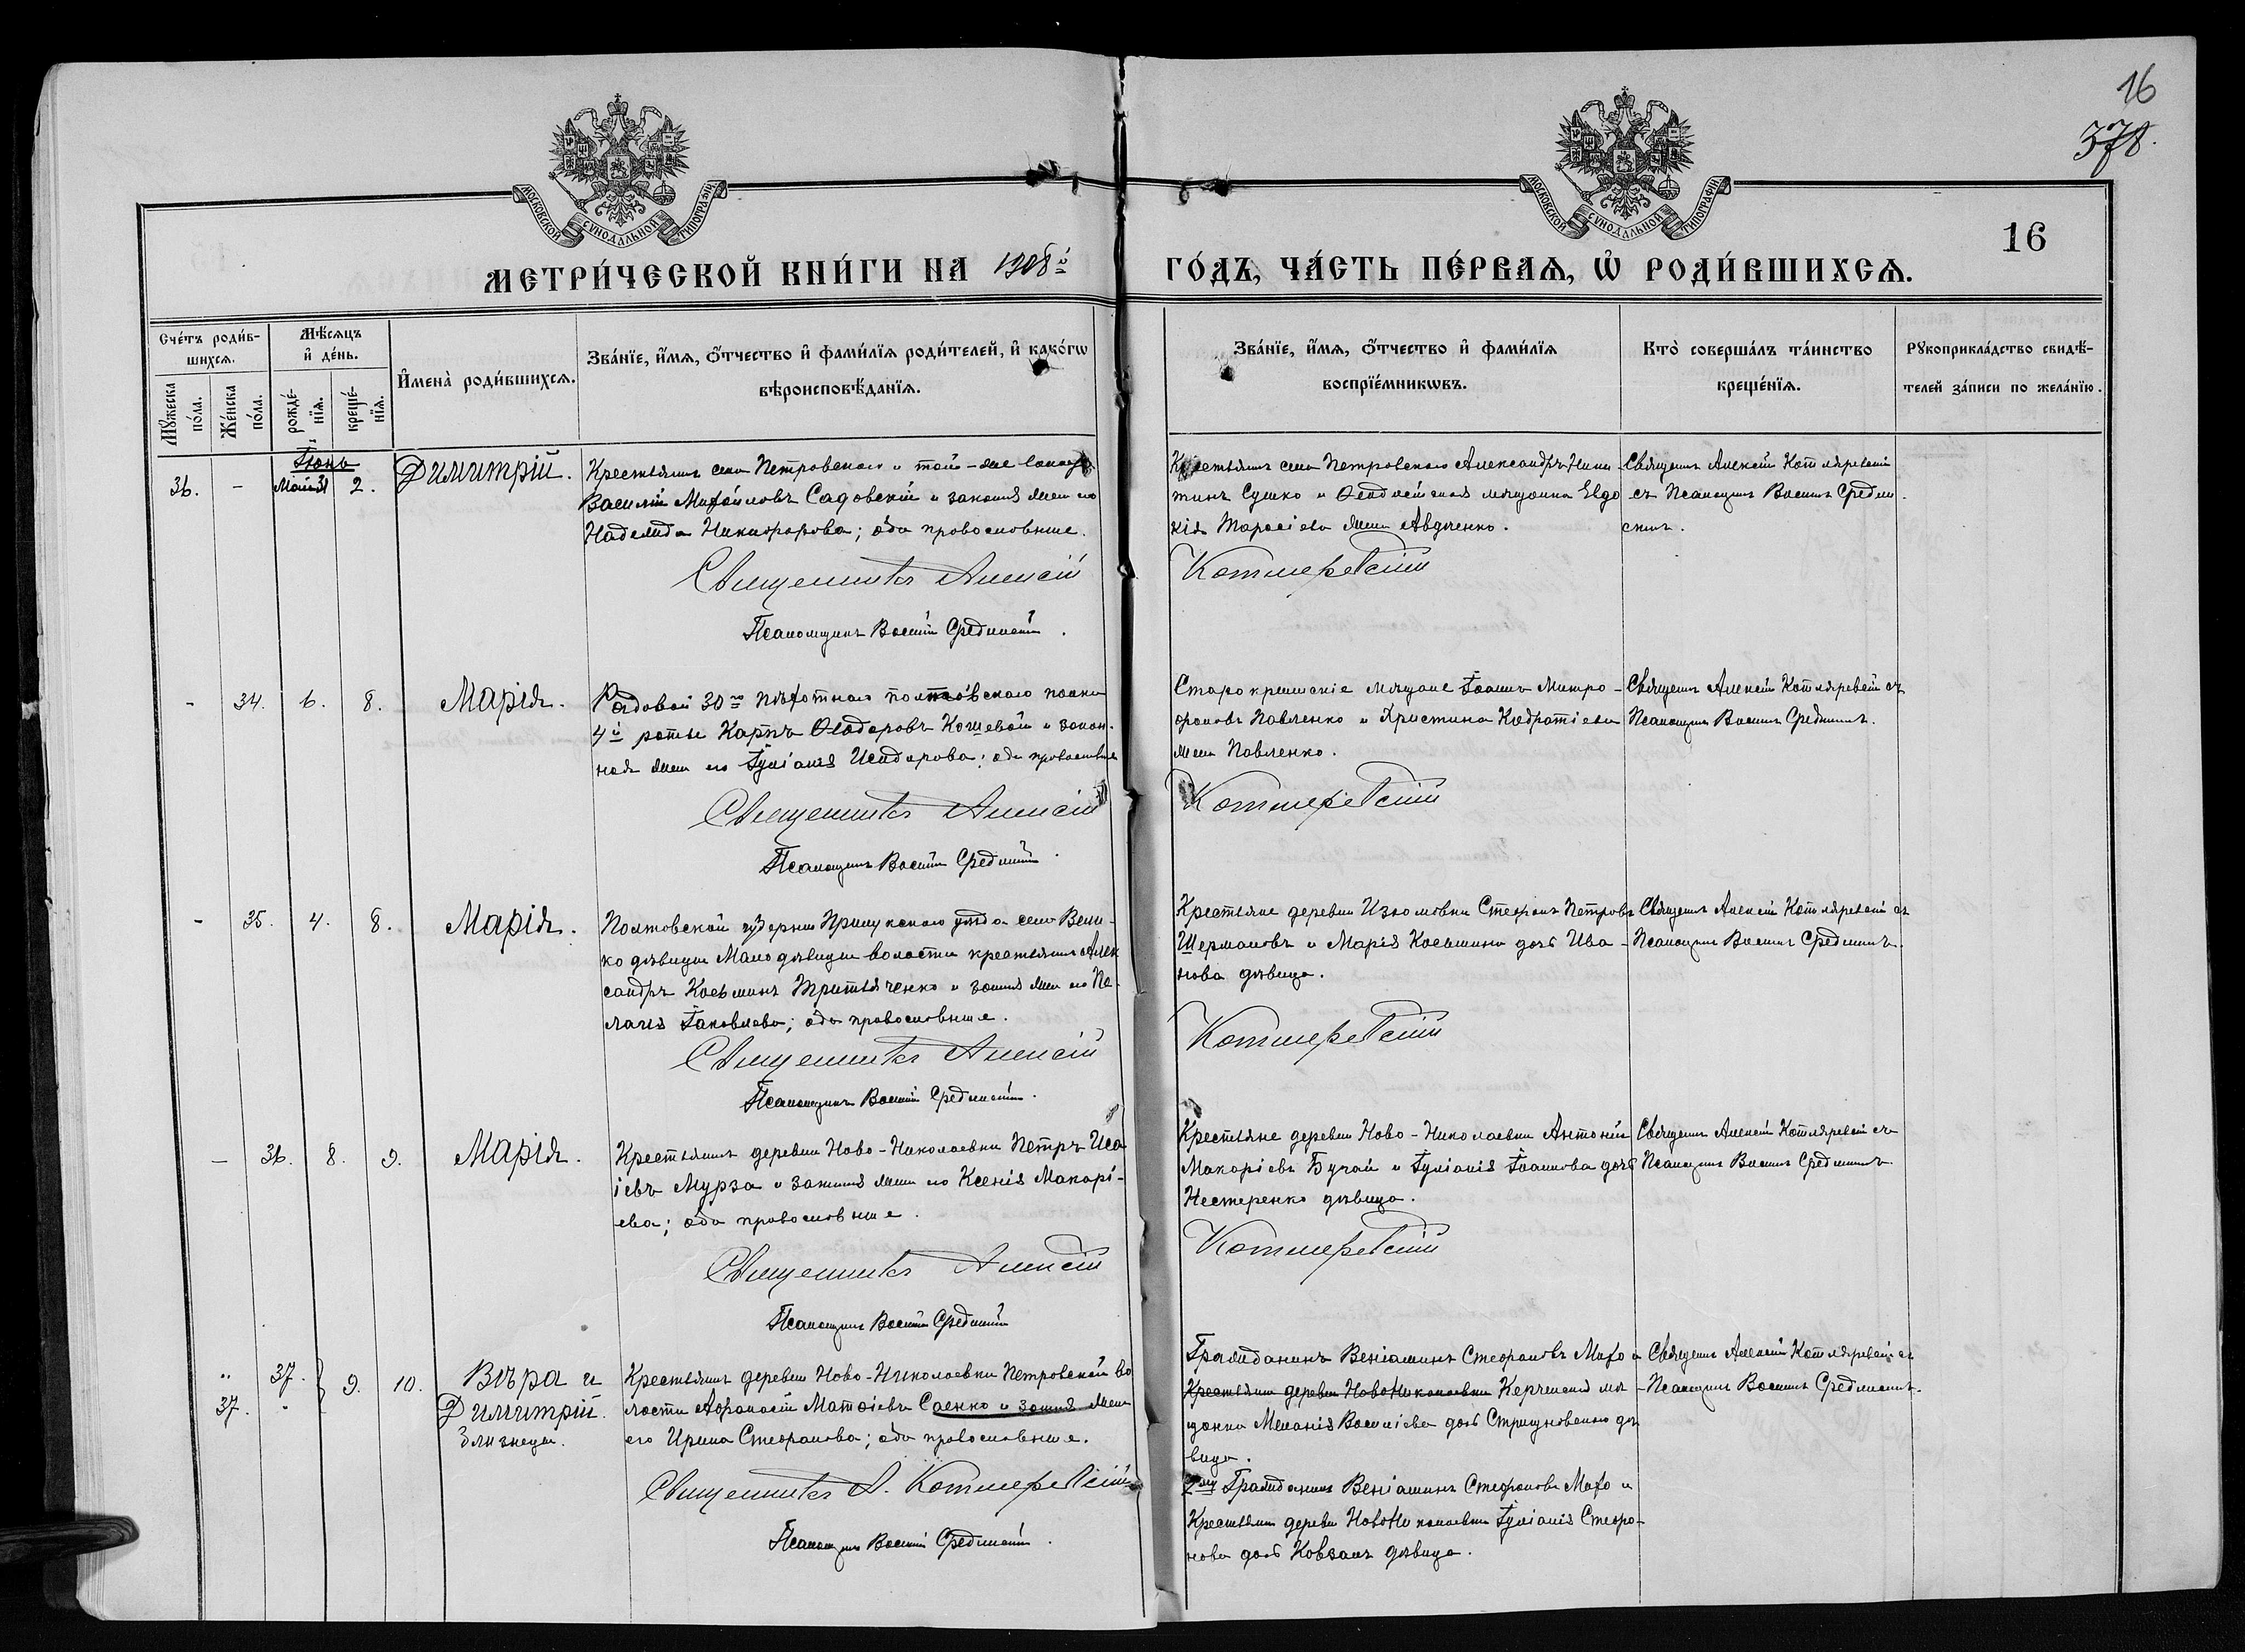 16
378.
МОСКОВСКОЙ СѴНОДАЛЬНОЙ ТИПОГРАФІИ
МОСКОВСКОЙ СѴНОДАЛЬНОЙ ТИПОГРАФІИ
16
МЕТРИ́ЧЕСКОЙ КНИ́ГИ НА 1908й
ГО́ДЪ, ЧА́СТЬ ПЕ́РВАѦ, Ѽ РОДИ́ВШИХСѦ.
Сче́тъ роди́в-
шихсѧ.
Мꙋ́жеска по́ла.
Же́нска по́ла.
Мѣ́сѧцъ и҆ де́нь.
рожде́-нїѧ.
креще́-нїѧ.
И҆мена̀ роди́вшихсѧ.
Зва́нїе, и҆́мѧ, ѻ҆́тчество и҆ фами́лїѧ роди́телей, и҆ како́гѡ
вѣроисповѣ́данїѧ.
Зва́нїе, и҆́мѧ, ѻ҆́тчество и҆ фами́лїѧ
воспрїе́мникѡвъ.
Кто̀ соверша́лъ та́инство
креще́нїѧ.
Рꙋкоприкла́дство свидѣ́-
телей за́писи по жела́нїю.
Іюнь
36. - Май 31 2. Димитрій.
Крестьянинъ села Петровскаго и той-же волости
Василій Михайловъ Садовскій и законная жена его
Надежда Никифорова; оба православные.
Священникъ Алексій
Псаломщикъ Василій Срединскій.
Крестьянинъ села Петровскаго Александръ Ники-
тинъ Сушко и Ѳеодосійская мѣщанка Евдо
кія Тарасіева жена Авдѣенко.
Котляревскій
Священ. Алексій Котляревскій
съ Псаломщ. Васил. Средин
скимъ.
- 34. 6. 8. Марія.
Рядовой 30го пѣхотнаго Полтавскаго полка
4й роты Карпъ Ѳеодоровъ Кошевой и закон-
ная жена его Іуліанія Исидорова; оба православные
Священникъ Алексій
Псаломщикъ Василій Срединскій.
Старокрымскіе мѣщане Іоаннъ Митро-
фановъ Павленко и Христина Кодратіева
жена Павленко.
Котляревскій
Священ. Алексій Котляревскій съ
Псаломщ. Васил. Срединскимъ.
- 35. 4. 8. Марія.
Полтавской губерніи Прилукскаго уѣзда села Вели-
кодѣвицы Малодѣвицкой волости крестьянинъ Алек
сандръ Косьминъ Третьяченко и законная жена его Пе-
лагія Іаковлева; оба православные.
Священникъ Алексій
Псаломщикъ Василій Срединскій.
Крестьяне деревни Изюмовки Стефанъ Петровъ
Шермановъ и Марія Косьмина дочь Ива-
нова дѣвица.
Котляревскій
Священ. Алексій Котляревскій съ
Псаломщ. Васил. Срединскимъ.
- 36. 8. 9. Марія.
Крестьянинъ деревни Ново-Николаевки Петръ Иса
іевъ Мурза и законная жена его Ксенія Макарі-
ева; оба православные.
Священникъ Алексій
Псаломщикъ Василій Срединскій
Крестьяне деревни Ново-Николаевки Антоній
Макаріевъ Бугай и Іуліанія Іоаннова дочь
Нестеренко дѣвица.
Котляревскій
Священ. Алексій Котляревскій съ
Псаломщ. Васил. Срединскимъ.
" 37. 9. 10. Вѣра и
37. " Димитрій.
близнецы.
Крестьянинъ деревни Ново-Николаевки Петровской во
лости Афанасій Матѳіевъ Саенко и законная жена
его Ирина Стефанова; оба православные.
Священникъ А. Котляревскій
Псаломщ. Василій Срединскій.
Гражданинъ Веніаминъ Стефановъ Махо и
Крестьянка деревни НовоНиколаевки Керченская мѣ-
щанка Меланія Василіева дочь Стригуновскаго дѣ
вица.
2му Гражданинъ Веніаминъ Стефановъ Махо и
Крестьянка деревни НовоНиколаевки Іуліанія Стефа-
нова дочь Ковзанъ дѣвица.
Священ. Алексій Котляревскій съ
Псаломщ. Васил. Срединскимъ.